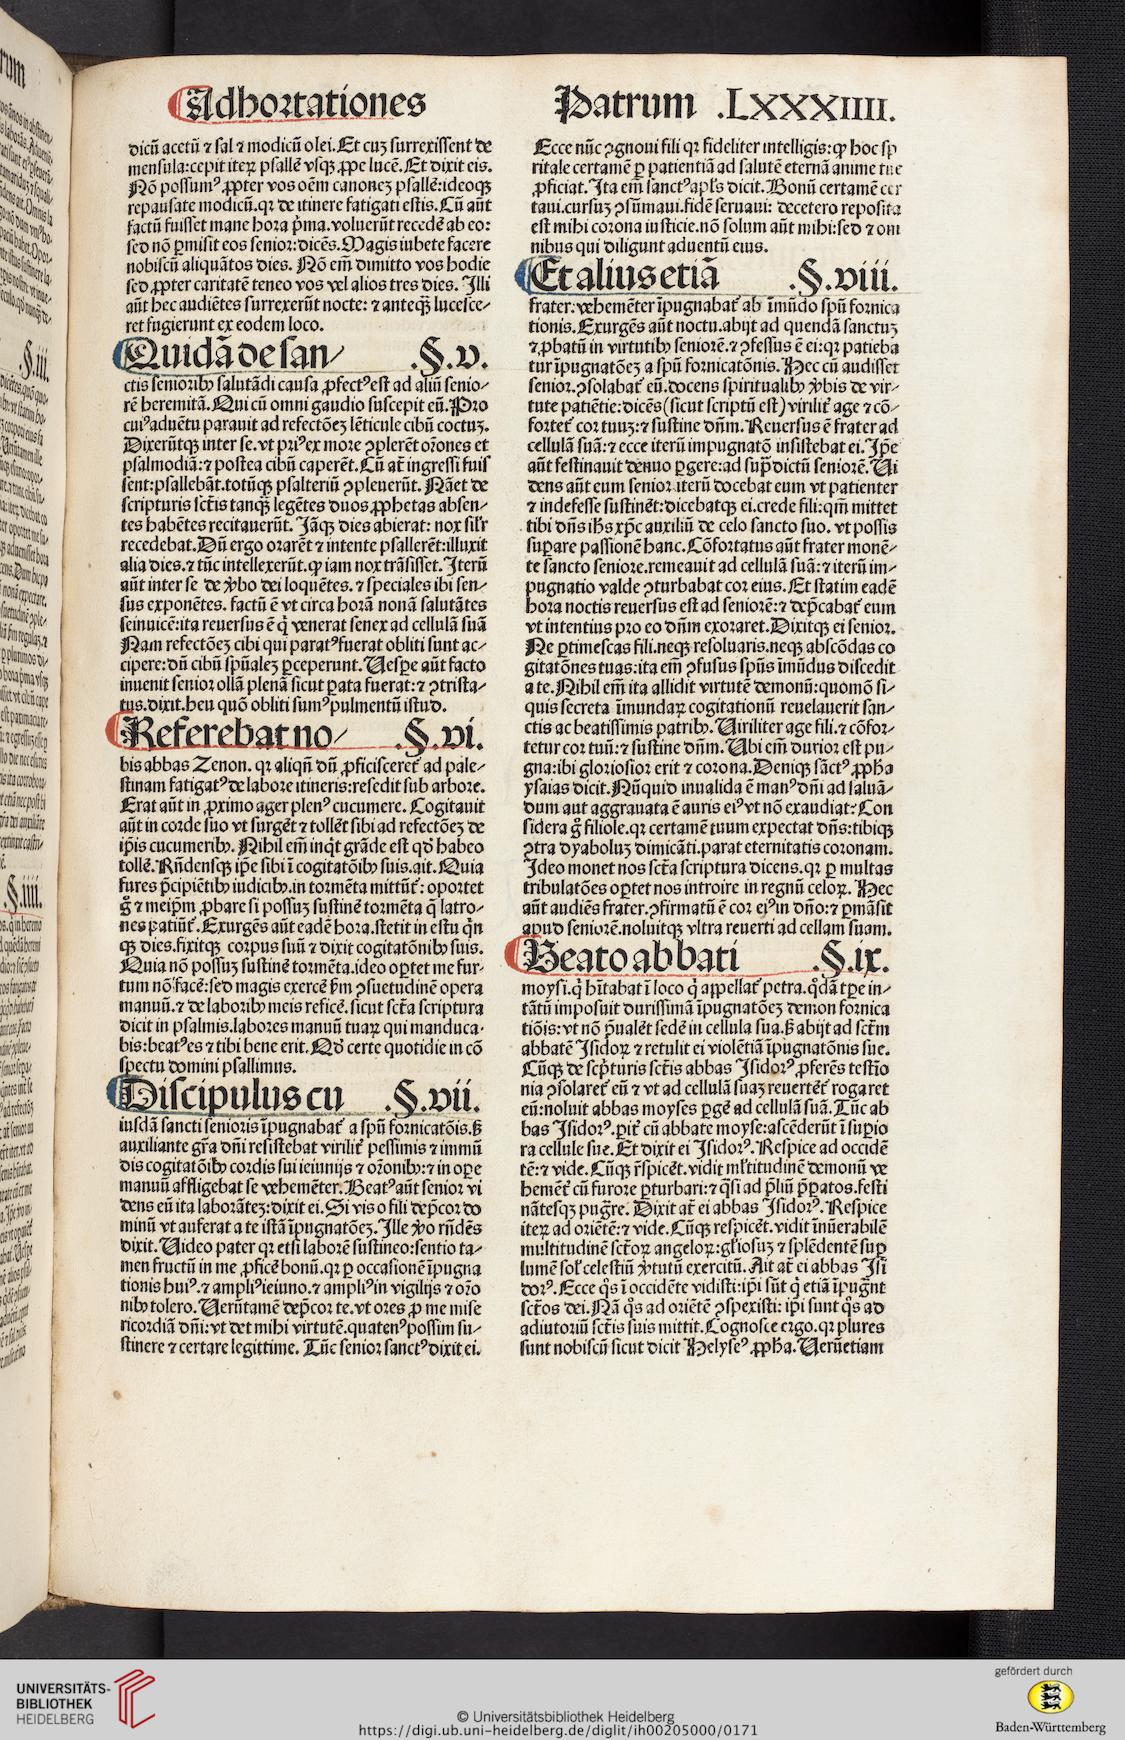 Adhortationes
dicũ acetũ ⁊ sal ⁊ modicũ olei. Et cuꝫ surrexissent de
mensula: cepit iterꝝ psallẽ vsqꝫ ꝓpe lucẽ. Et dixit eis.
Nõ possumꝰ ꝓpter vos oẽm canonez psallẽ: ideoqꝫ
repausate modicũ. qꝛ de itinere fatigati estis. Cũ aũt
factũ fuisset mane hora p̃ma. voluerũt recedẽ ab eo:
sed nõ ꝑmisit eos senior: dicẽs. Magis iubete facere
nobiscũ aliquãtos dies. Nõ em̃ dimitto vos hodie
sed ꝓpter caritatẽ teneo vos vel alios tres dies. Illi
aũt hec audiẽtes surrexerũt nocte: ⁊ anteqꝫ̃ lucesce-
ret fugierunt ex eodem loco.
Quidã de san/ .§.v.
ctis senioribꝰ salutãdi causa ꝓfectꝰ est ad aliũ senio-
rẽ heremitã. Qui cũ omni gaudio suscepit eũ. Pro
cuiꝰ aduẽtu parauit ad refectõez lẽticule cibũ coctuꝫ.
Dixerũtqꝫ inter se. vt priꝰ ex more ꝯplerẽt or̃ones et
psalmodiã: ⁊ postea cibũ caperẽt. Cũ at̃ ingressi fuis
sent: psallebãt. totũqꝫ psalteriũ ꝯpleuerũt. Nã et de
scripturis sct̃is tanqꝫ̃ legẽtes duos ꝓphetas absen-
tes habẽtes recitauerũt. Iãqꝫ dies abierat: nox sil̃r
recedebat. Dũ ergo orarẽt ⁊ intente psallerẽt: illuxit
alia dies. ⁊ tũc intellexerũt. ꝙ iam nox trãsisset. Iterũ
aũt inter se de ṽbo dei loquẽtes. ⁊ speciales ibi sen-
sus exponẽtes. factũ ẽ vt circa horã nonã salutãtes
seinuicẽ: ita reuersus ẽ q̃ venerat senex ad cellulã suã
Nam refectõez cibi qui paratꝰ fuerat obliti sunt ac-
cipere: dũ cibũ spũalez ꝑceperunt. Uesꝑe aũt facto
inuenit senior ollã plenã sicut ꝑata fuerat: ⁊ ꝯtrista-
tus. dixit. heu quõ obliti sumꝰ pulmentũ istud.
Referebat no/ .§.vi.
bis abbas Zenon. qꝛ aliqñ dũ ꝓficisceret̃ ad pale-
stinam fatigatꝰ de labore itineris: resedit sub arbore.
Erat aũt in ꝓximo ager plenꝰ cucumere. Cogitauit
aũt in corde suo vt surgẽt ⁊ tollẽt sibi ad refectõez de
ip̃is cucumeribꝰ. Nihil em̃ inq̃t grãde est qd̃ habeo
tollẽ. Rñdensqꝫ ip̃e sibi ĩ cogitatõibꝰ suis. ait. Quia
fures p̃cipiẽtibꝰ iudicibꝰ. in tormẽta mittũt̃: oportet
g̃ ⁊ meip̃m ꝓbare si possuꝫ sustinẽ tormẽta q̃ latro-
nes patiũt̃. Exurgẽs aũt eadẽ hora. stetit in estu q̃n
qꝫ dies. fixitqꝫ corpus suũ ⁊ dixit cogitatõnibꝰ suis.
Quia nõ possuꝫ sustinẽ tormẽta. ideo oꝑtet me fur-
tum nõ facẽ: sed magis exercẽ ẜm ꝯsuetudinẽ opera
manuũ. ⁊ de laboribꝰ meis reficẽ. sicut sct̃a scriptura
dicit in psalmis. labores manuũ tuarꝝ qui manduca-
bis: beatꝰ es ⁊ tibi bene erit. Qd̃ certe quotidie in cõ
spectu domini psallimus.
Discipulus cu .§.vii.
iusdã sancti senioris ĩpugnabat̃ a spũ fornicatõis. ẞ
auxiliante gr̃a dñi resistebat virilit̃ pessimis ⁊ immũ
dis cogitatõibꝰ cordis sui ieiunijs ⁊ or̃onibꝰ: ⁊ in oꝑe
manuũ affligebat se vehemẽter. Beatꝰ aũt senior vi
dens eũ ita laborãteꝫ: dixit ei. Si vis o fili dep̃cor do
minũ vt auferat a te istã ĩpugnatõeꝫ. Ille ṽo rñdẽs
dixit. Uideo pater qꝛ etsi laborẽ sustineo: sentio ta-
men fructũ in me ꝓficẽ bonũ. qꝛ ꝑ occasionẽ ĩpugna
tionis huiꝰ. ⁊ ampliꝰ ieiuno. ⁊ ampliꝰ in vigilijs ⁊ or̃o
nibꝰ tolero. Uerũtamẽ dep̃cor te. vt ores ꝓ me mise
ricordiã dñi: vt det mihi virtutẽ. quatenꝰ possim su-
stinere ⁊ certare legittime. Tũc senior sanctꝰ dixit ei.
Patrum .LXXXIIII.
Ecce nũc ꝯgnoui fili qꝛ fideliter intelligis: ꝙ hoc sp
ritale certamẽ ꝑ patientiã ad salutẽ eternã anime tue
ꝓficiat. Ita em̃ sanctꝰ apl̃s dicit. Bonũ certamẽ cer
taui. cursuꝫ ꝯsũmaui. fidẽ seruaui: decetero reposita
est mihi corona iusticie. nõ solum aũt mihi: sed ⁊ om
nibus qui diligunt aduentũ eius.
Et alius etiã .§.viii.
frater: vehemẽter ĩpugnabat̃ ab ĩmũdo spũ fornica
tionis. Exurgẽs aũt noctu. abijt ad quendã sanctuꝫ
⁊ ꝓbatũ in virtutibꝰ seniorẽ. ⁊ ꝯfessus ẽ ei: qꝛ patieba
tur ĩpugnatõeꝫ a spũ fornicatõnis. Hec cũ audisset
senior. ꝯsolabat̃ eũ. docens spiritualibꝰ ṽbis de vir-
tute patiẽtie: dicẽs (sicut scriptũ est) virilit̃ age ⁊ cõ-
fortet̃ cor tuuꝫ: ⁊ sustine dñm. Reuersus ẽ frater ad
cellulã suã: ⁊ ecce iterũ impugnatõ insistebat ei. Ip̃e
aũt festinauit denuo ꝑgere: ad sup̃dictũ seniorẽ. Ui
dens aũt eum senior iterũ docebat eum vt patienter
⁊ indefesse sustinẽt: dicebatqꝫ ei. crede fili: qm̃ mittet
tibi dñs ih̃s xp̃c auxiliũ de celo sancto suo. vt possis
suꝑare passionẽ hanc. Cõfortatus aũt frater monẽ-
te sancto seniore. remeauit ad cellulã suã: ⁊ iterũ im-
pugnatio valde ꝯturbabat cor eius. Et statim eadẽ
hora noctis reuersus est ad seniorẽ: ⁊ dep̃cabat̃ eum
vt intentius pro eo dñm exoraret. Dixitqꝫ ei senior.
Ne ꝑtimescas fili. neqꝫ resoluaris. neqꝫ abscõdas co
gitatõnes tuas: ita em̃ ꝯfusus spũs ĩmũdus discedit
a te. Nihil em̃ ita allidit virtutẽ demonũ: quomõ si-
quis secreta ĩmundarꝝ cogitationũ reuelauerit san-
ctis ac beatissimis patribꝰ. Uiriliter age fili. ⁊ cõfor-
tetur cor tuũ: ⁊ sustine dñm. Ubi em̃ durior est pu-
gna: ibi gloriosior erit ⁊ corona. Deniqꝫ sãctꝰ ꝓph̃a
ysaias dicit. Nũquid inualida ẽ manꝰ dñi ad saluã-
dum aut aggrauata ẽ auris eiꝰ vt nõ exaudiat: Con
sidera g̃ filiole. qꝛ certamẽ tuum expectat dñs: tibiqꝫ
ꝯtra dyaboluꝫ dimicãti. parat eternitatis coronam.
Ideo monet nos scт̃a scriptura dicens. qꝛ ꝑ multas
tribulatões oꝑtet nos introire in regnũ celorꝝ. Hec
aũt audiẽs frater. ꝯfirmatũ ẽ cor eiꝰ in dño: ⁊ ꝑmãsit
apud seniorẽ. noluitqꝫ vltra reuerti ad cellam suam.
Beato abbati .§.ix.
moysi. q̃ h̃itabat ĩ loco q̃ appellat̃ petra. q̃dã tꝑe in-
tãtũ imposuit durissimã ĩpugnatõeꝫ demon fornica
tiõis: vt nõ p̃ualẽt sedẽ in cellula sua. ẞ abijt ad scт̃m
abbatẽ Isidorꝝ ⁊ retulit ei violẽtiã ĩpugnatõnis sue.
Cũqꝫ de scp̃turis scт̃is abbas Isidorꝰ ꝓferẽs testĩo
nia ꝯsolaret̃ eũ ⁊ vt ad cellulã suaꝫ reuertẽt̃ rogaret
eũ: noluit abbas moyses ꝑgẽ ad cellulã suã. Tũc ab
bas Isidorꝰ. ꝑit̃ cũ abbate moyse: ascẽderũt ĩ suꝑio
ra cellule sue. Et dixit ei Isidorꝰ. Respice ad occidẽ
tẽ: ⁊ vide. Cũqꝫ r̃spicẽt. vidit ml̃titudinẽ demonũ ve
hemẽt̃ cũ furore ꝑturbari: ⁊ q̃si ad p̃liũ p̃ꝑatos. festi
nãtesqꝫ pug̃re. Dixit at̃ ei abbas Isidorꝰ. Respice
iterꝝ ad oriẽtẽ: ⁊ vide. Cũqꝫ respicẽt. vidit ĩnũerabilẽ
multitudinẽ scт̃orꝝ angelorꝝ: gl̃iosuꝫ ⁊ splẽdentẽ suꝑ
lumẽ sol̃ celestiũ ṽtutũ exercitũ. Ait at̃ ei abbas Isi
dorꝰ. Ecce q̃s ĩ occidẽte vidisti: ip̃i sũt q̃ etiã ĩpug̃nt
scт̃os dei. Nã q̃s ad oriẽtẽ ꝯspexisti: ip̃i sunt q̃s ad
adiutoriũ scт̃is suis mittit. Cognosce ergo. qꝛ plures
sunt nobiscũ sicut dicit Helyseꝰ ꝓph̃a. Uerũetiam
UNIVERSITÄTS-
BIBLIOTHEK
HEIDELBERG
© Universitätsbibliothek Heidelberg
https://digi.ub.uni-heidelberg.de/diglit/ih00205000/0171
gefördert durch
Baden-Württemberg